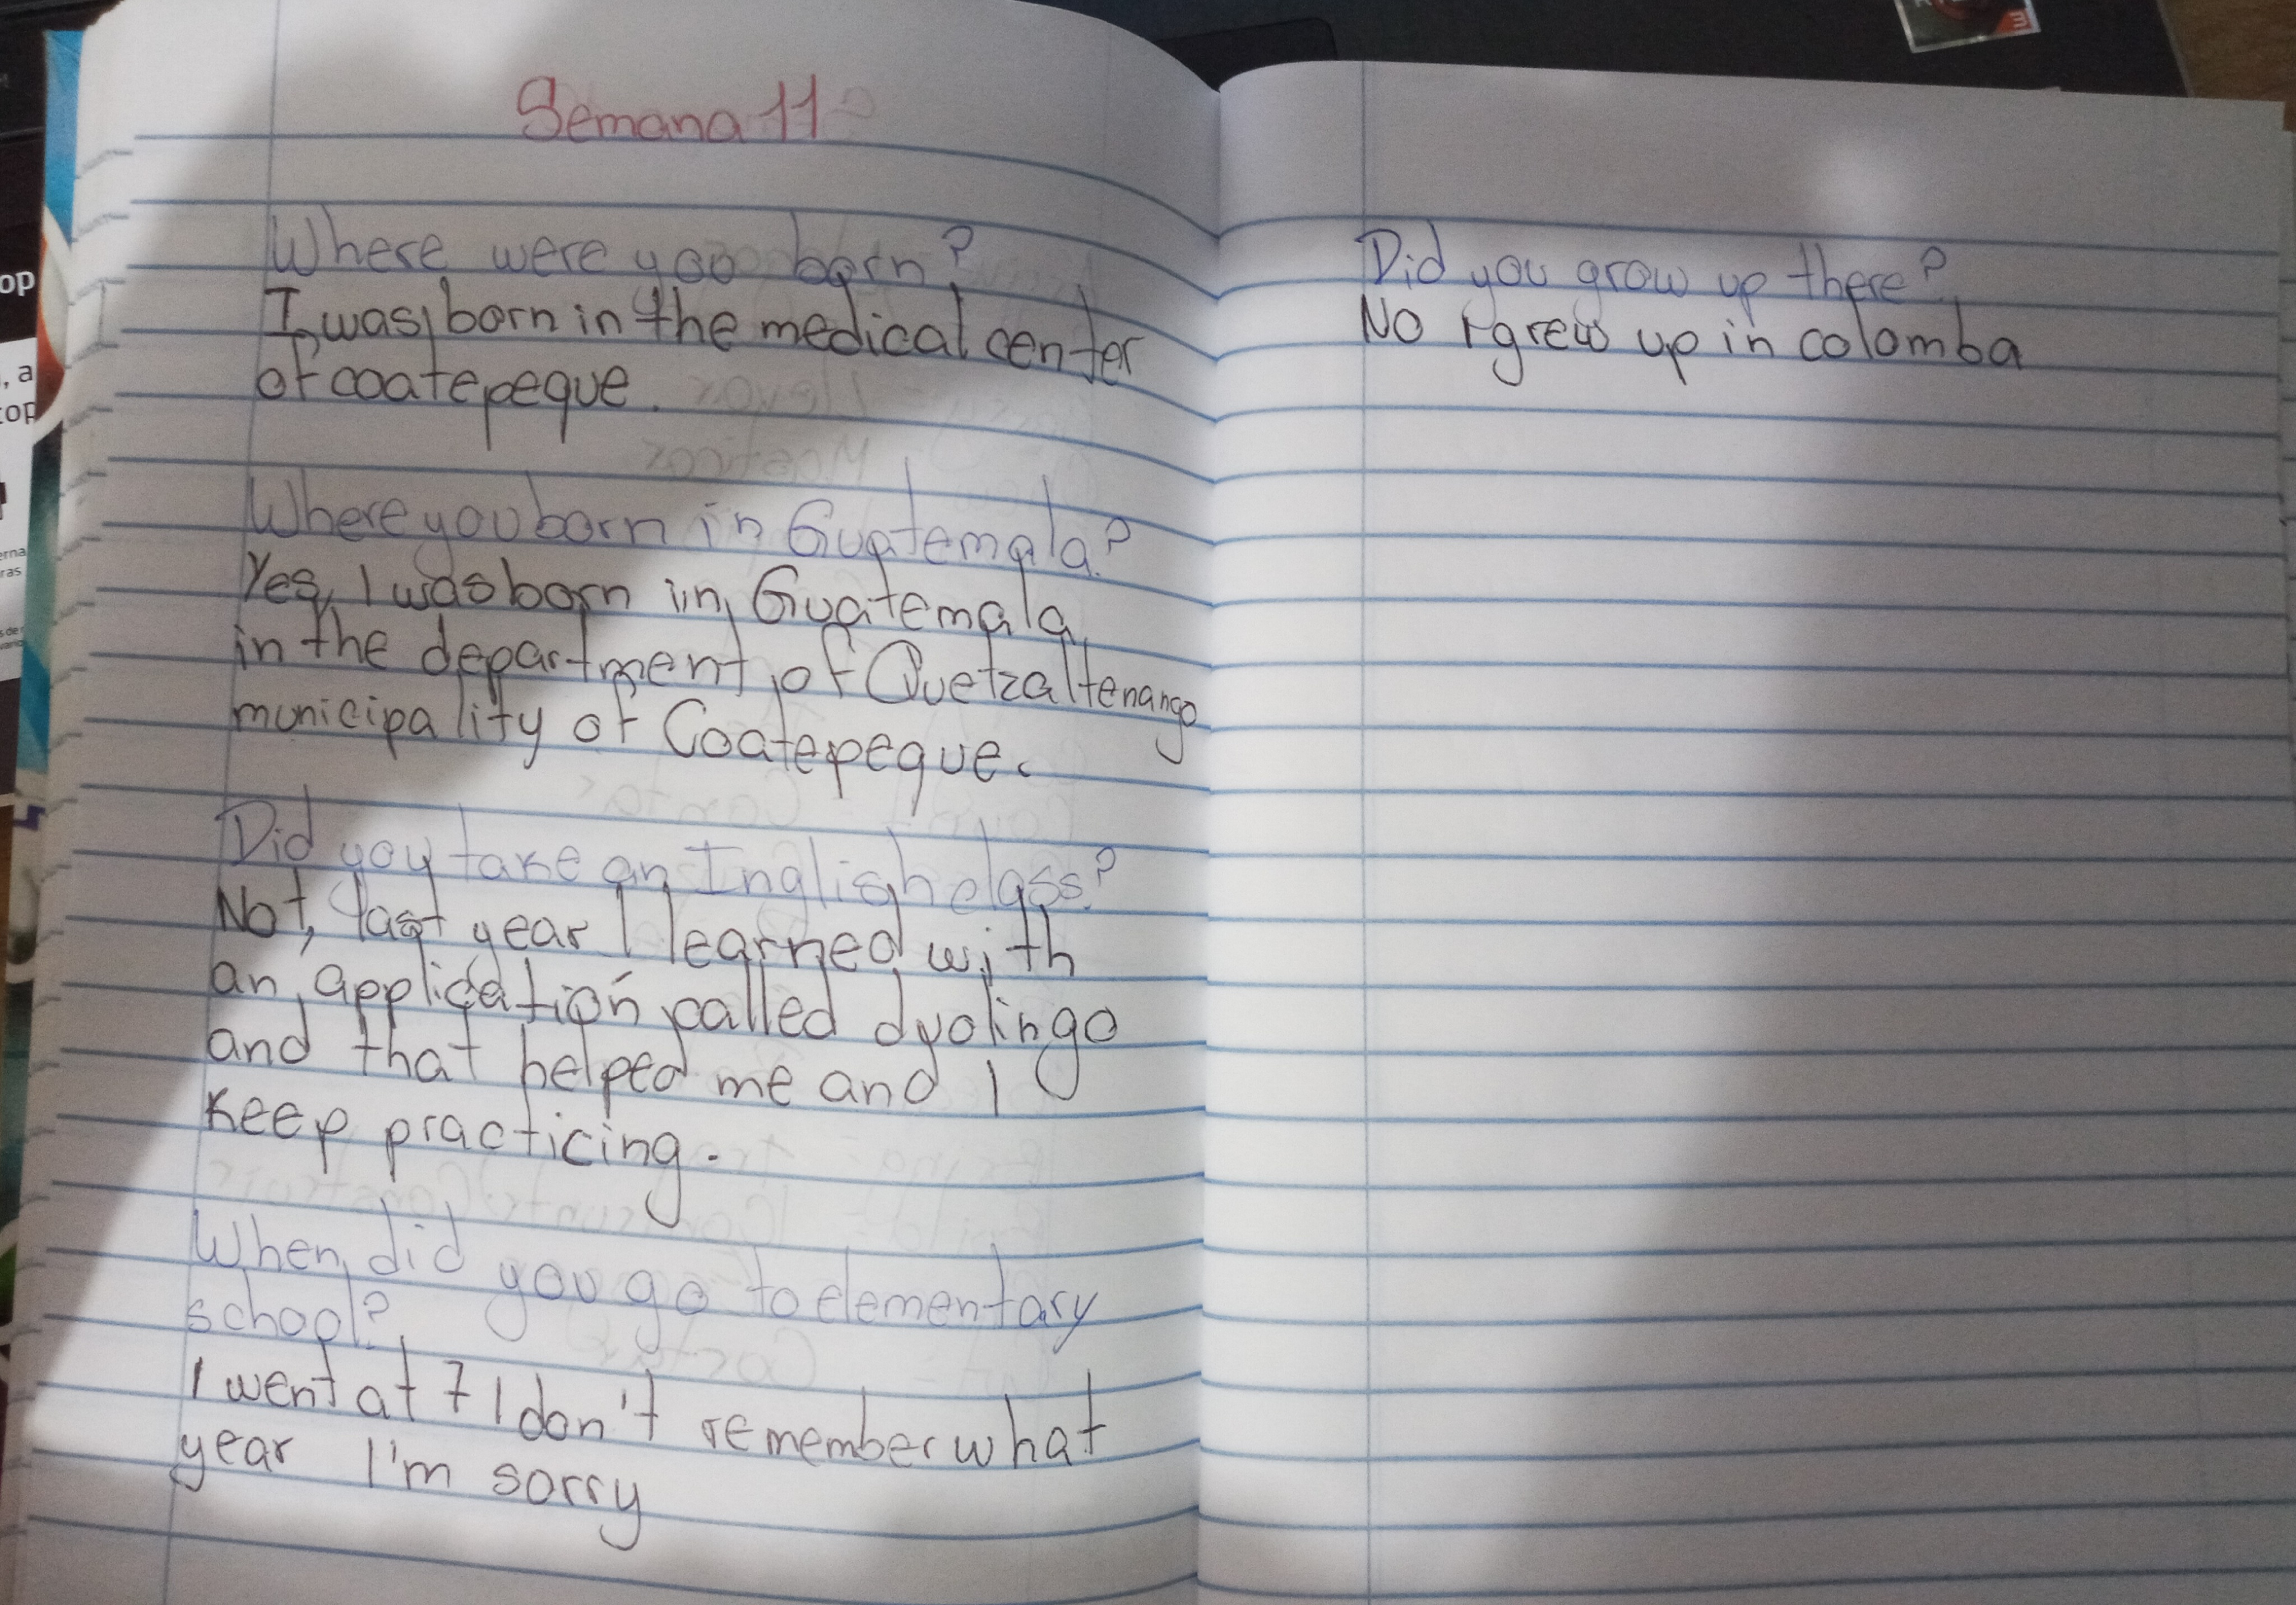 Semana 11
Where were you born?
I was born in the medical center
of coatepeque.
Where you born in Guatemala?
Yes, I was born in Guatemala,
in the department of Quetzaltenango
municipality of Coatepeque.
Did you take an Inglish class?
Not, last year I learned with
an applicatión called duolingo
and that helped me and I
keep practicing.
When did you go to elementary
school?
I went at 7 I don't remember what
year I'm sorry
Did you grow up there?
No I grew up in colomba